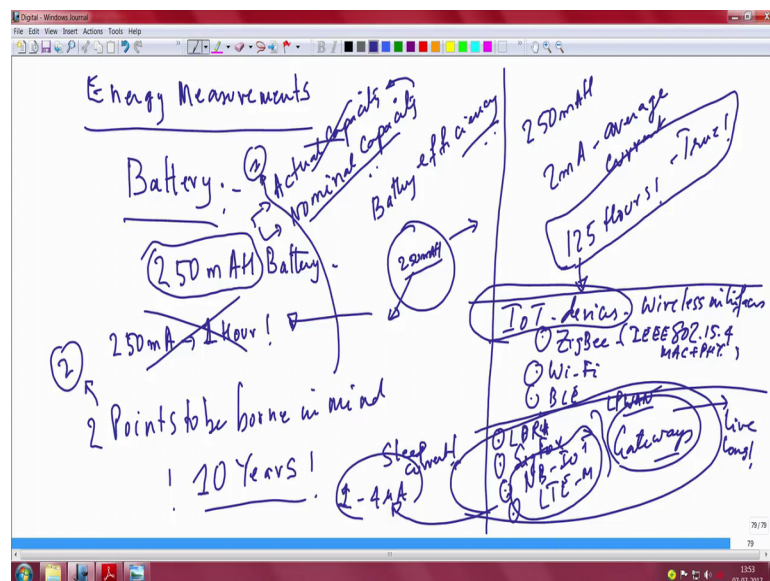 Digital - Windows Journal
File Edit View Insert Actions Tools Help
Energy Measurements
Battery :-
Actual Capacity
Nominal Capacity
Battery efficiency
250 mAH Battery -
250mAH
250 mA → 1 Hour !
2
2 Points to be borne in mind
! 10 Years !
Sleep current
1-4 µA
250mAH
2mA - average
current
125 Hours! - True!
IoT - devices - Wireless interfaces
ZigBee - (IEEE 802.15.4
MAC+PHY)
Wi-Fi
BLE
LPWAN
LORA
Sigfox
NB-IoT
LTE-M
Gateways
Live
long!
79/79
79
13:53
07-07-2017